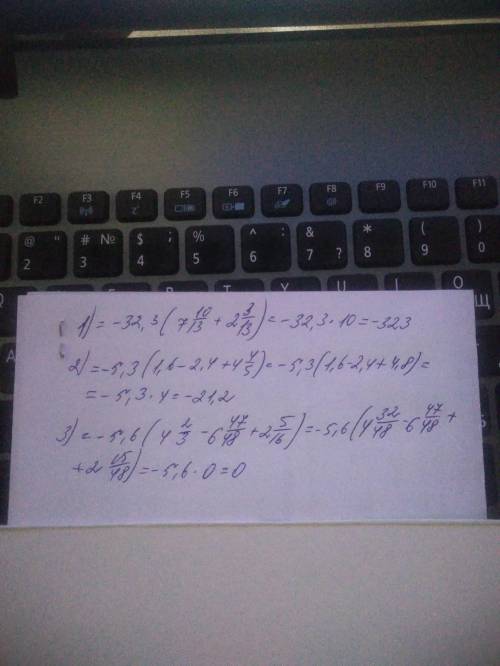 F2 F3 F4 F5 F6 F7 F8 F9 F10 F11
@ " # № $ ; % ^ : & * ( )
2 3 4 5 6 7 ? 8 9 0
1) = -32,3(7 10/13 + 2 3/13) = -32,3 · 10 = -323
2) = -5,3(1,6 - 2,4 + 4 4/5) = -5,3(1,6 - 2,4 + 4,8) =
= -5,3 · 4 = -21,2
3) = -5,6(4 2/3 - 6 47/48 + 2 5/16) = -5,6(4 32/48 - 6 47/48 +
+ 2 15/48) = -5,6 · 0 = 0